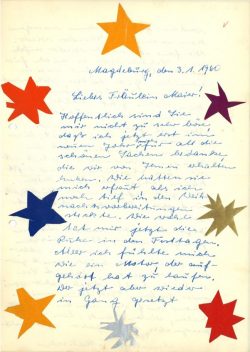 Magdeburg, den 3.1.1960
Liebes Fräulein Maier!
Hoffentlich sind Sie
mir nicht zu sehr böse
daß ich jetzt erst im
neuen Jahr für all die
schönen Sachen bedanke,
die wir von Ihnen erhalten
haben. Wir hatten sie
mich erfreut als ich
noch tief in den Weih
nachtsvorbereitungen
steckte. Wie wohl
tat mir jetzt die
Ruhe in den Festtagen.
Aber ich fühlte mich
wie ein Motor der auf-
gehört hat zu laufen.
Der jetzt aber wieder
in Gang gesetzt